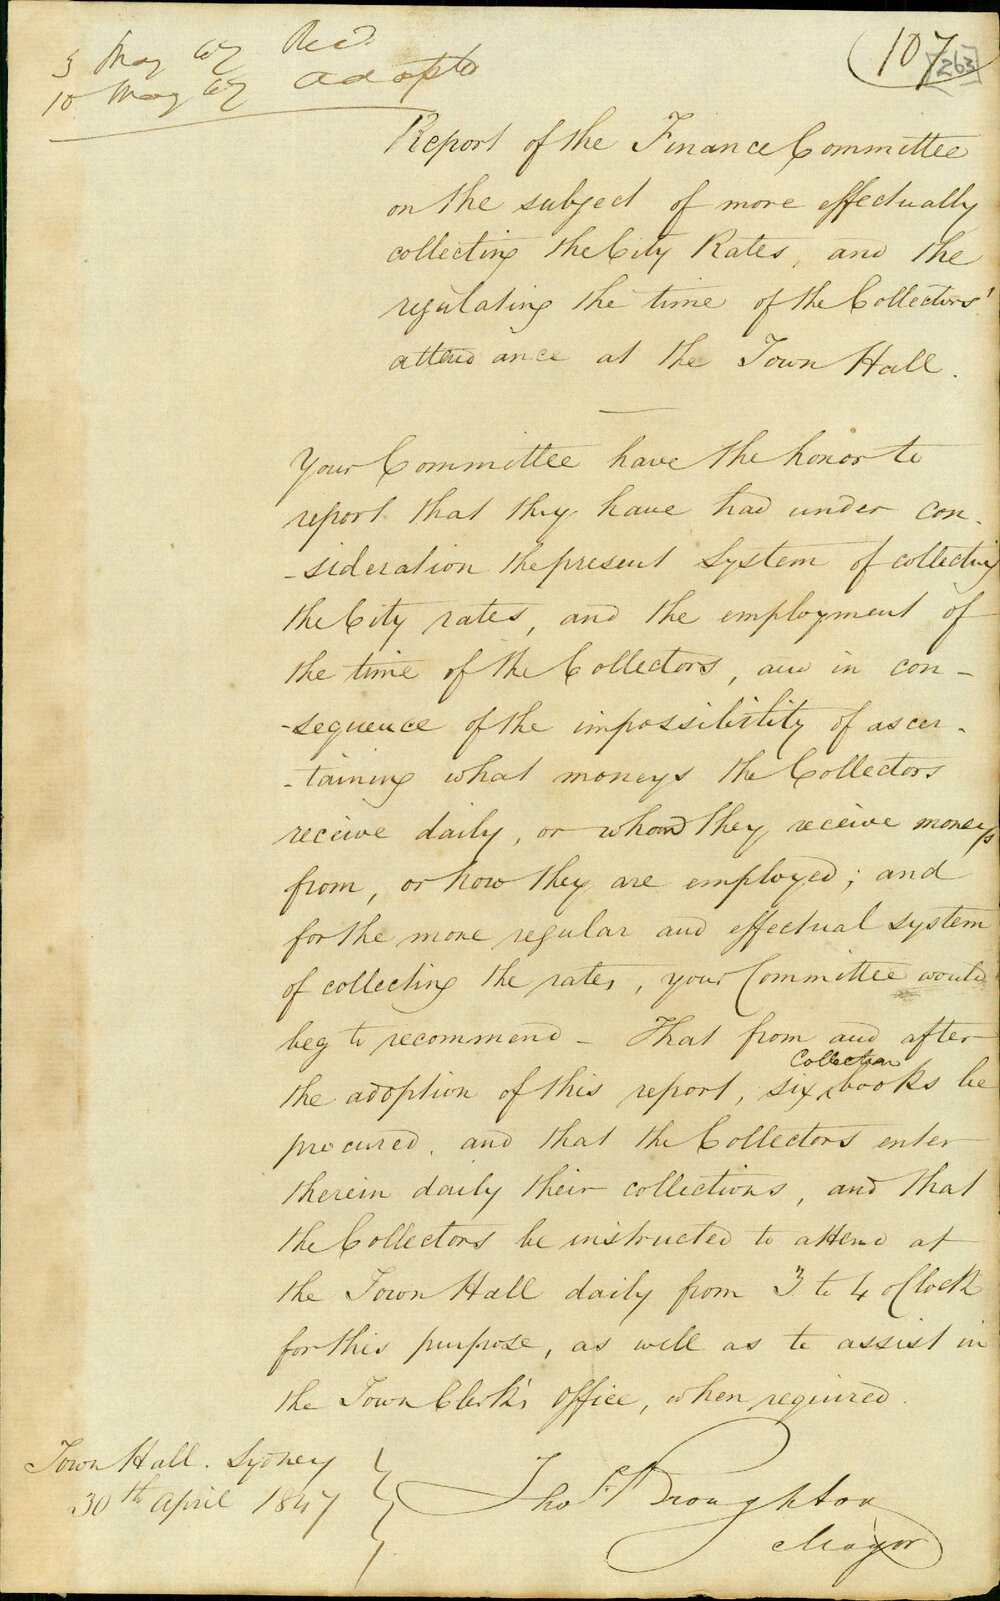 3 May 47 Recd
10 May 47 adoptd
107
[263]
Report of the Finance Committee
on the subject of more effectually
collecting the City Rates, and the
regulating the time of the Collectors'
attendance at the Town Hall.
Your Committee have the honor to
report that they have had under con-
-sideration the present System of collecting
the City rates, and the employment of
the time of the Collectors, and in con-
-sequence of the impossibility of ascer-
-taining what moneys the Collectors
receive daily, or whom they receive moneys
from, or how they are employed; and
for the more regular and effectual system
of collecting the rates, your Committee would
beg to recommend - That from and after
the adoption of this report, six Collection books be
procured, and that the Collectors enter
therein daily their collections, and that
the Collectors be instructed to attend at
the Town Hall daily from 3 to 4 oClock
for this purpose, as well as to assist in
the Town Clerk's Office, when required.
Town Hall. Sydney
30th April 1847
Thos Broughton
Mayor